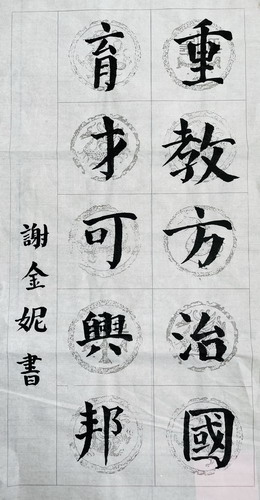 重教方治國
育才可興邦
謝金妮書